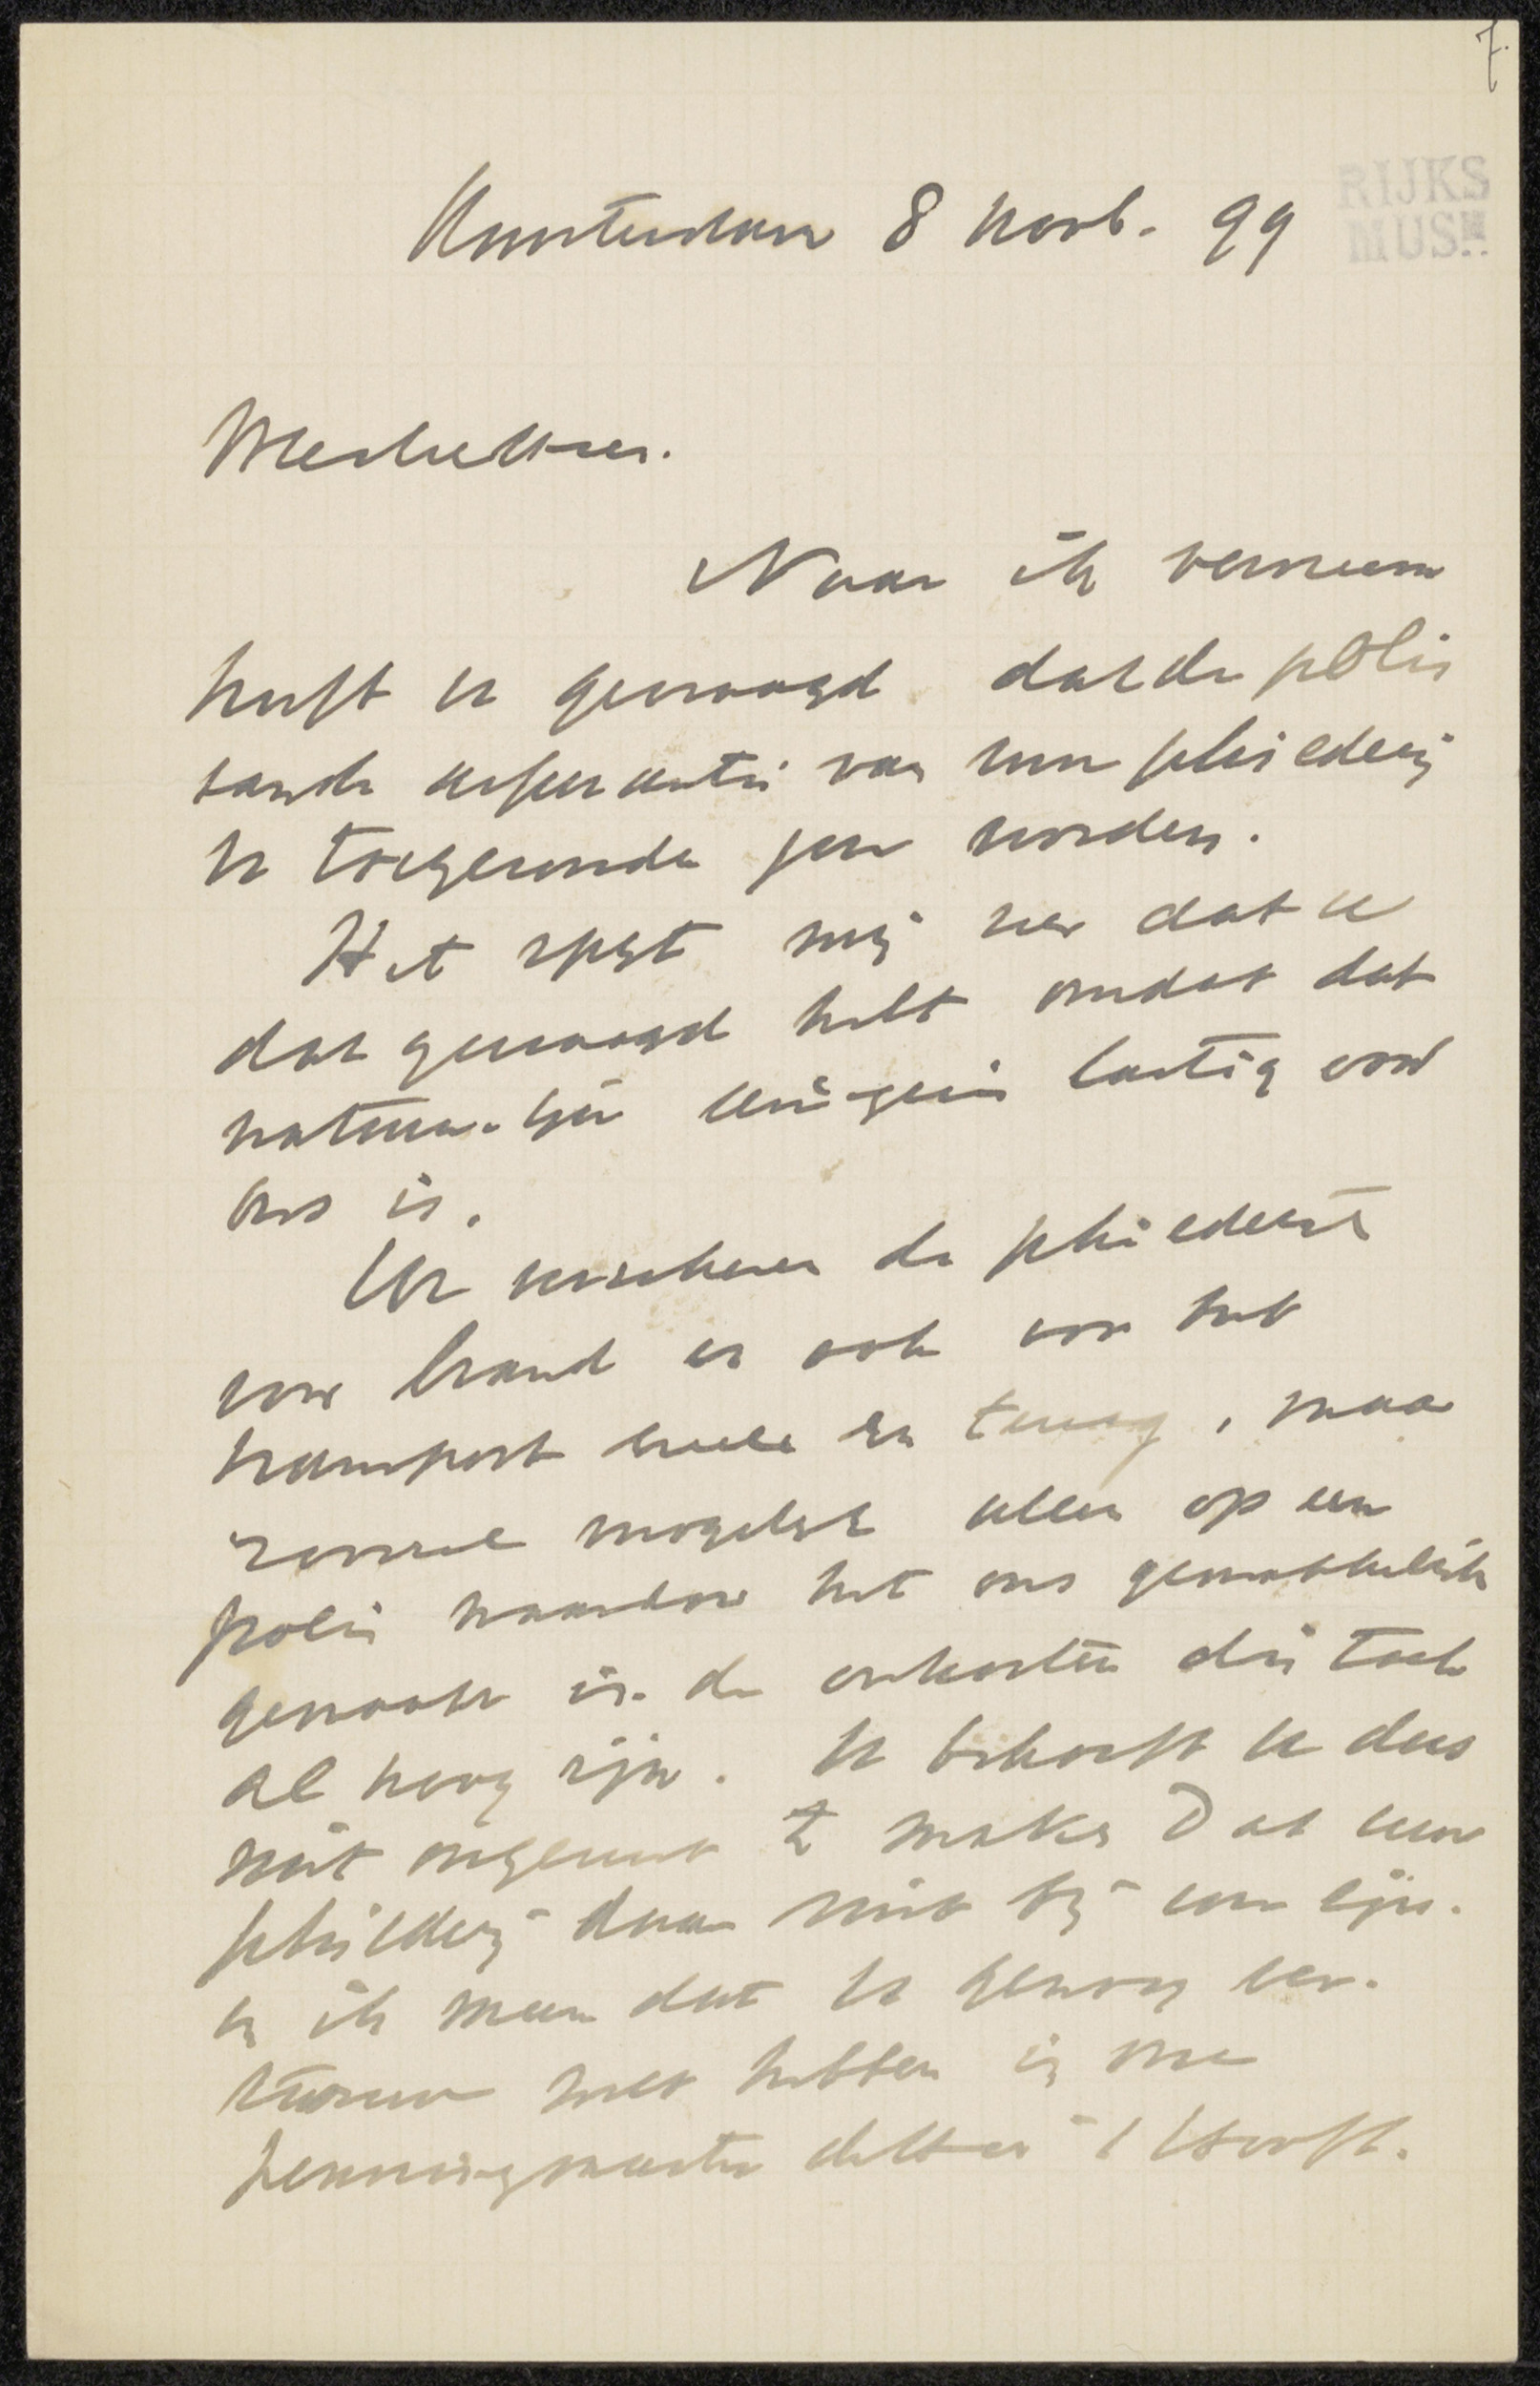 7.
RIJKS
MUSM
Amsterdam 8 Novb. 99
Mevrouw.
Naar ik verneem
heeft u gevraagd dat de polis
van de assurantie van uw schilderij
u toegezonden zou worden.
Het spijt mij zeer dat u
dat gevraagd hebt omdat dat
natuurlijk lastig voor
ons is.
We verzekeren de schilderijen
voor brand en ook voor het
transport heen en terug, maar
zooveel mogelijk alles op een
polis waardoor het ons gemakkelijk
gemaakt is de onkosten die toch
al hoog zijn. U behoeft u dus
niet ongerust te maken dat uw
schilderij daar niet bij zou zijn.
en ik meen dat u genoeg ver-
trouwen zult hebben in onze
penningmeester